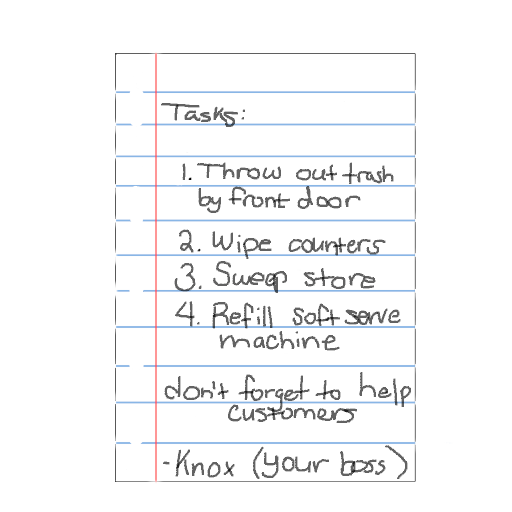 Tasks:
1. Throw out trash
by front door
2. Wipe counters
3. Sweep store
4. Refill soft serve
machine
don't forget to help
customers
-Knox (your boss)